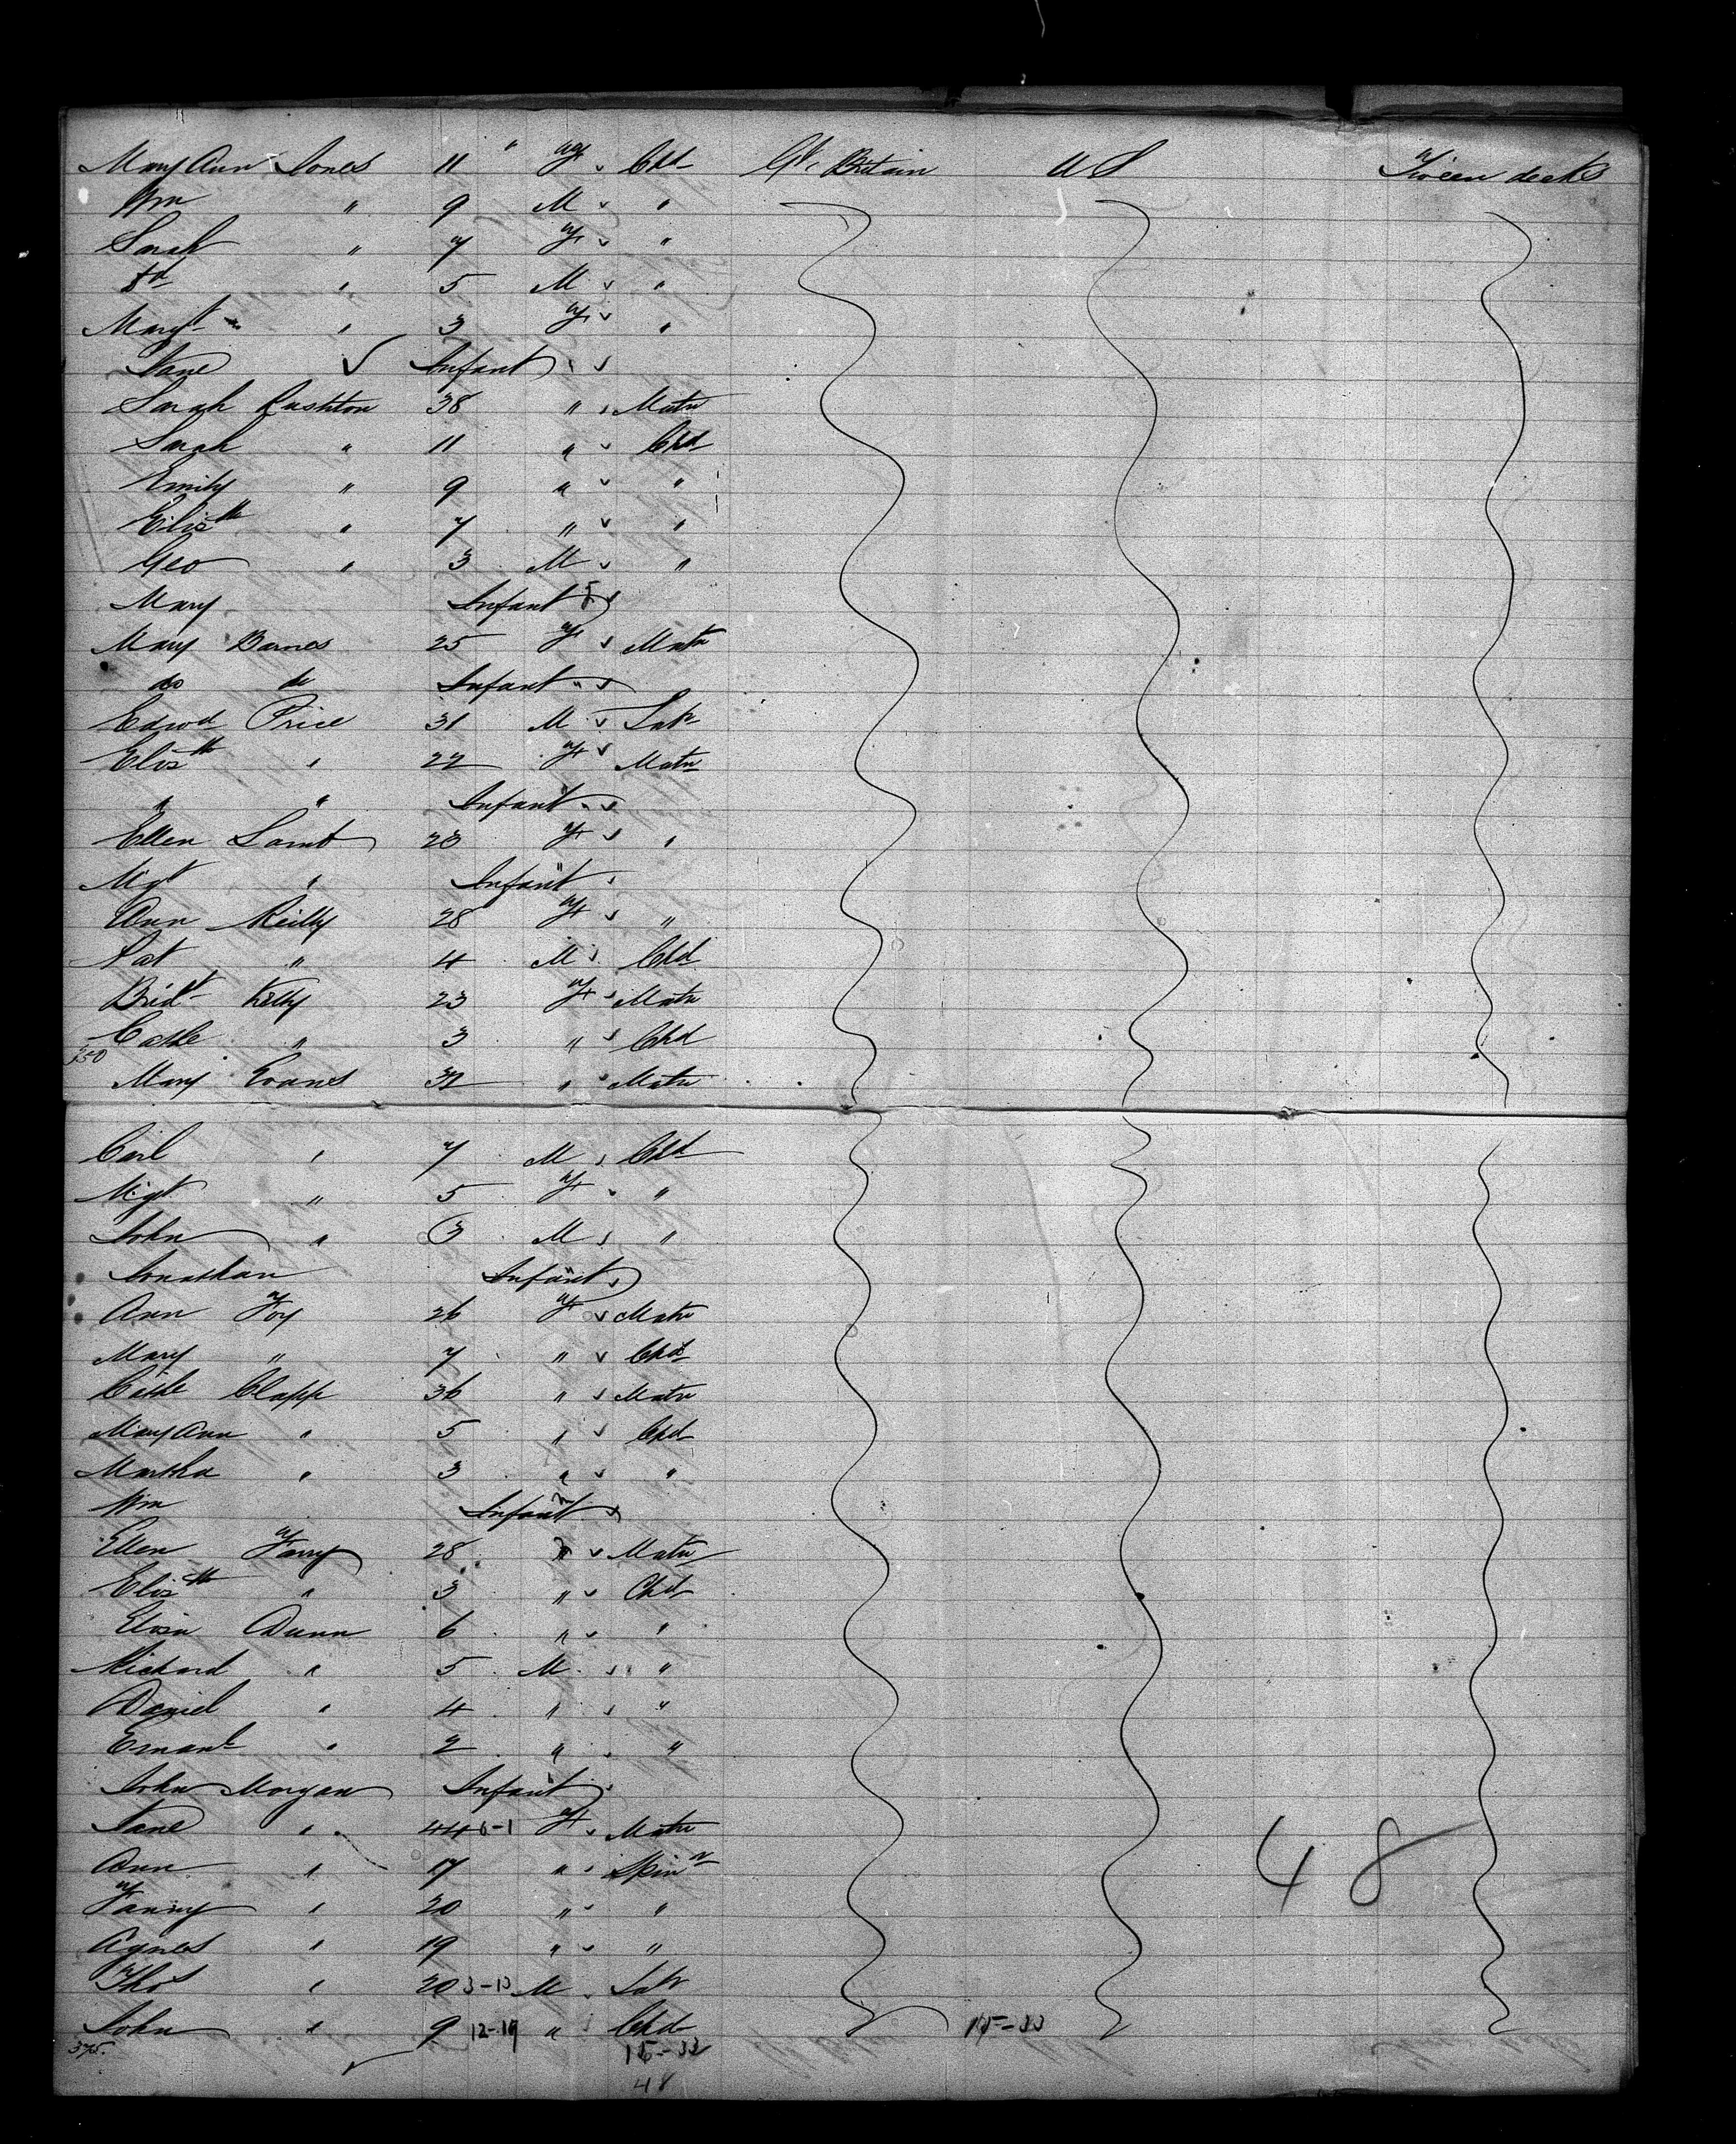 Mary Ann Jones 11 " F Chd Gt Britain U S Tween decks
Wm " 9 M "
Sarah " 7 F "
Ed " 5 M "
Margt " 3 F "
Jane Infant "
Sarah Rushton 38 " Matn
Sarah " 11 " Chd
Emily " 9 " "
Elizth " 7 " "
Geo " 3 M "
Mary Infant
Mary Barnes 25 F Matn
do do Infant "
Edwd Price 31 M Labr
Elizth " 22 F Matn
" " Infant "
Ellen Lamb 23 F "
Mgt " Infant "
Ann Reilly 28 F "
Pat " 4 M Chd
Bridt Kelly 23 F Matn
Cathe " 3 " Chd
350
Mary Evans 32 " Matn
Carl " 7 M Chd
Mgt " 5 F "
John " 3 M "
Jonathan Infant "
Ann Foy 26 F Matn
Mary " 7 " Chd
Cathe Clapp 36 " Matn
Mary Ann " 5 " Chd
Martha " 3 " "
Wm Infant
Ellen Farry 28 " Matn
Elizth " 3 " Chd
Eliza Dunn 6 " "
Richard " 5 M "
Daniel " 4 " "
Emanl " 2 " "
John Morgan Infant "
Jane " 44 6-1 F Matn
Ann " 17 " Spinr
48
Fanny " 20 " "
Agnes " 19 " "
Thos " 20 3-13 M Labr
John " 9 12-19 " Chd 15-33
375. 15-33
48